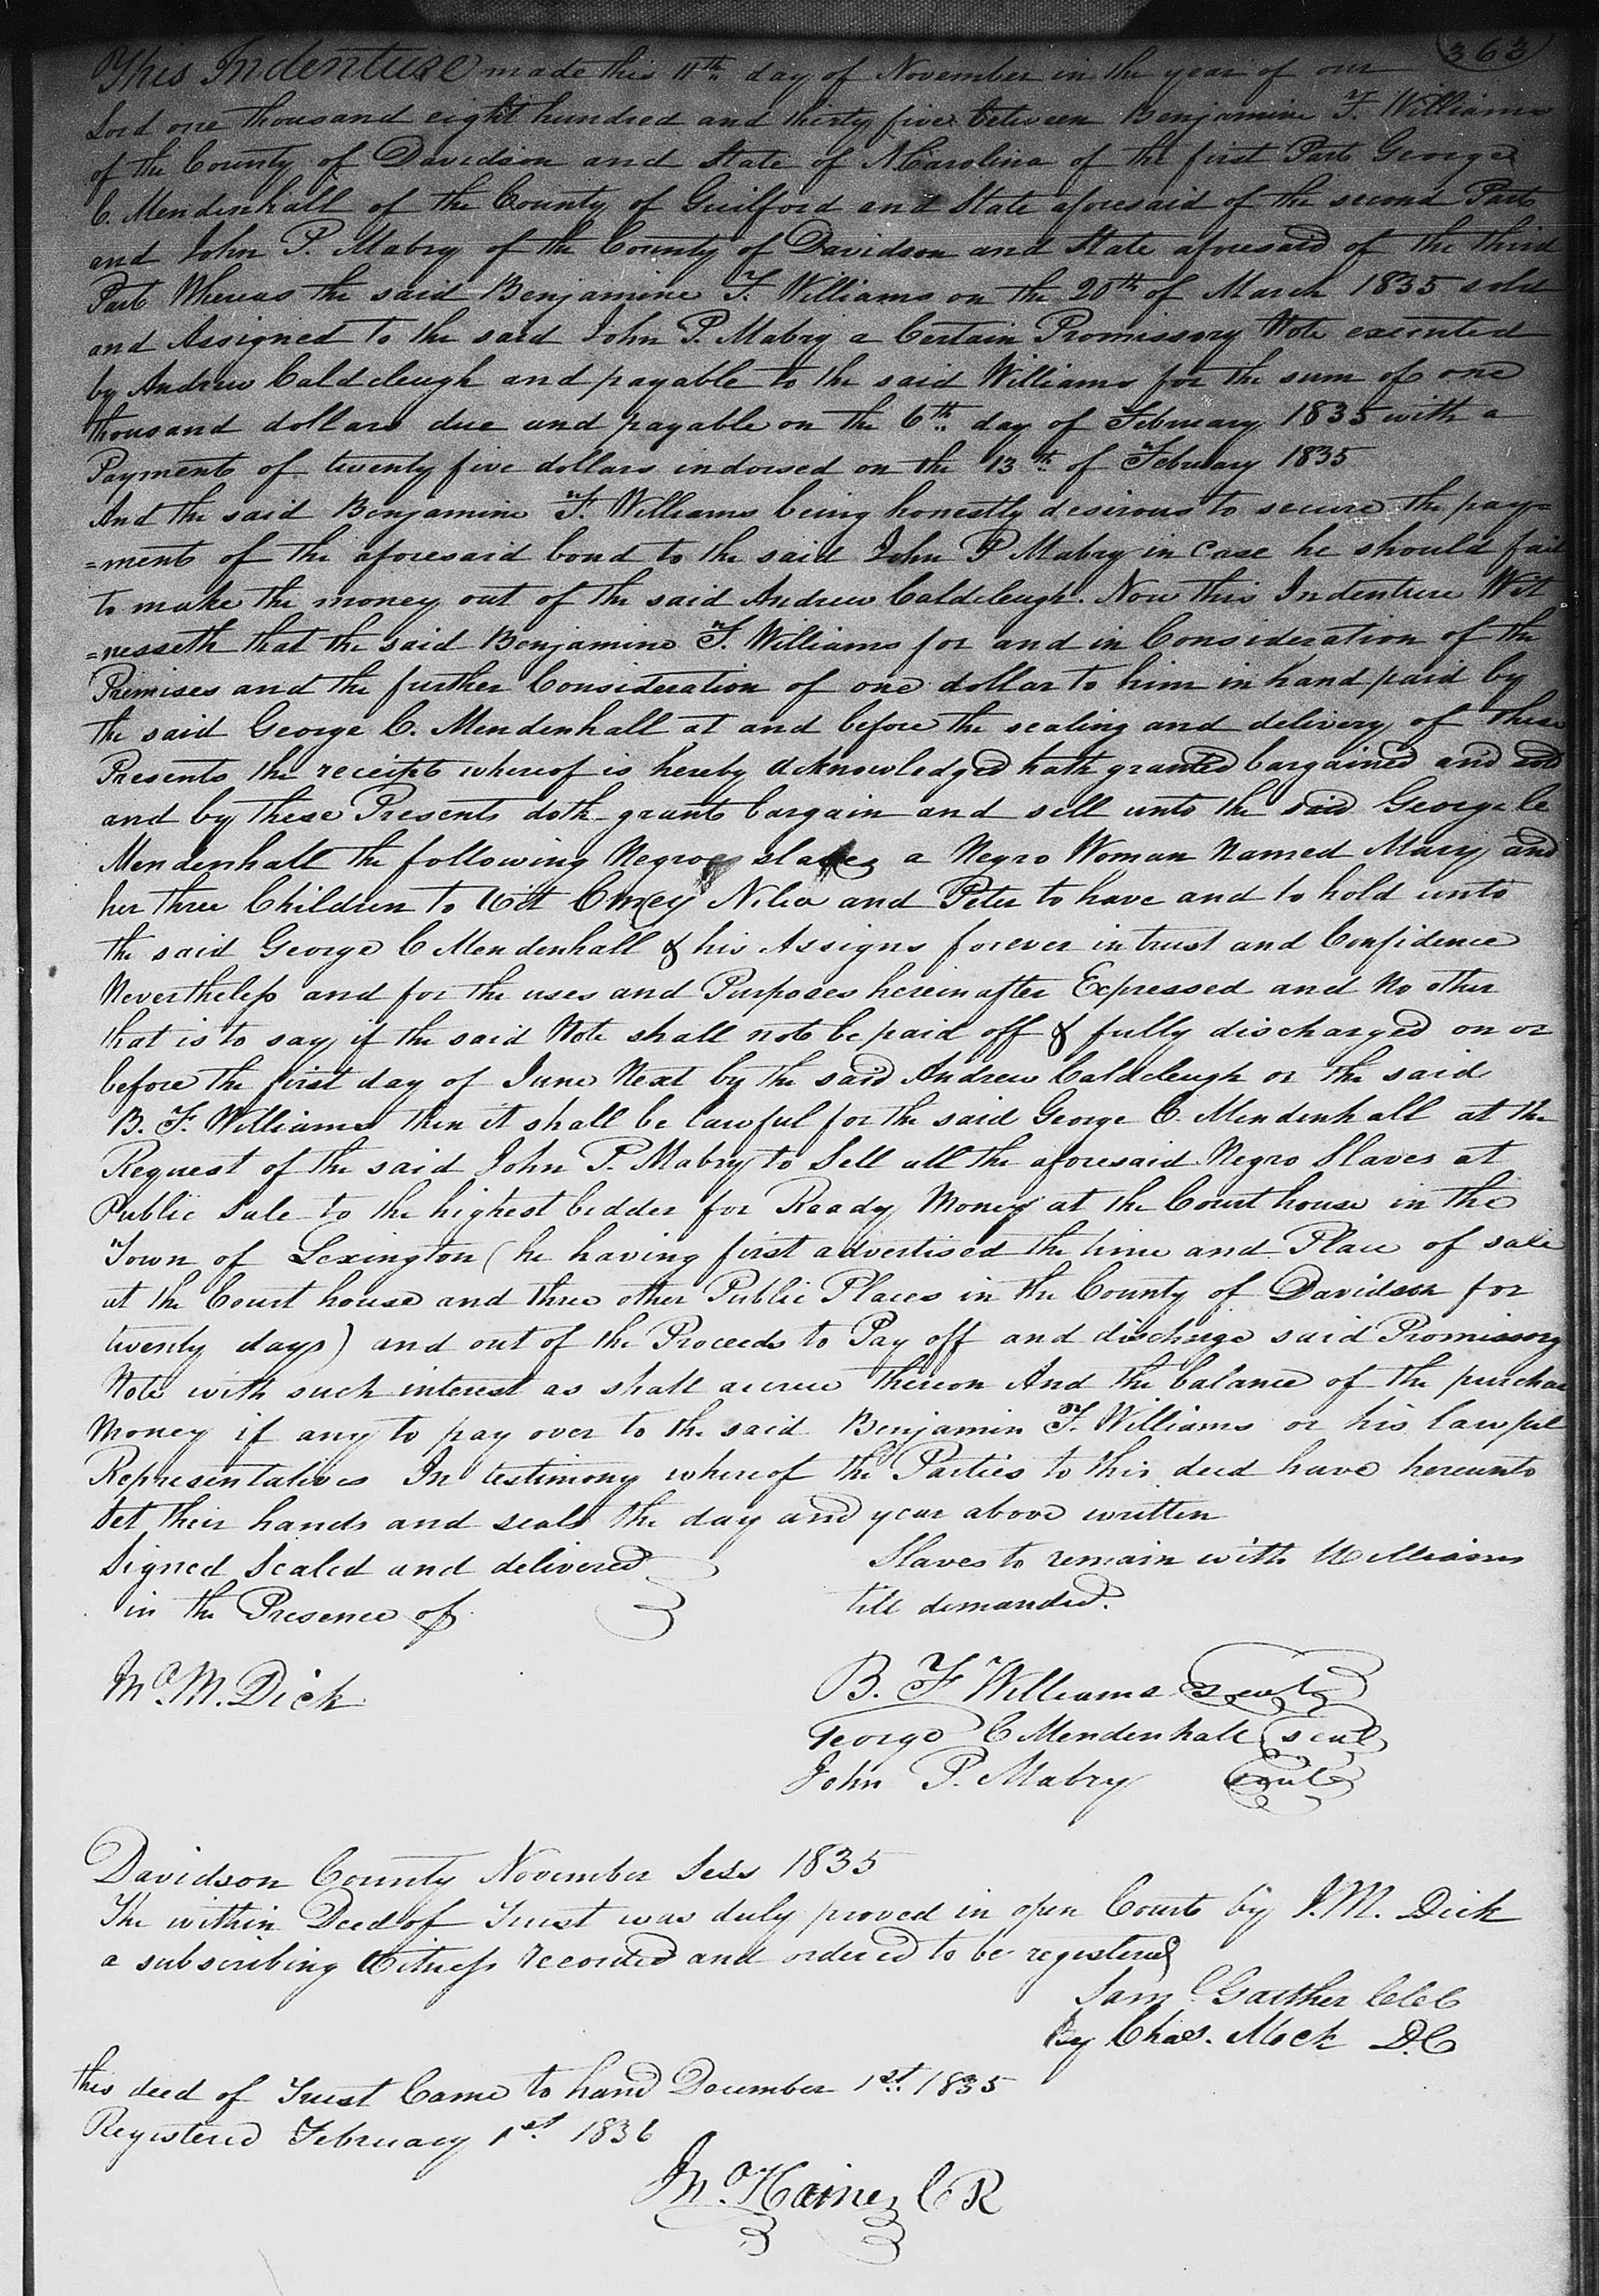 363
This Indenture made this 11th day of November in the year of our
Lord one thousand eight hundred and thirty five between Benjamine F. Williams
of the County of Davidson and State of N Carolina of the first Part George
C. Mendenhall of the County of Guilford and State aforesaid of the second Part
and John P. Mabry of the County of Davidson and State aforesaid of the third
Part Whereas the said Benjamine F. Williams on the 20th of March 1835 sold
and Assigned to the said John P. Mabry a Certain Promissory Note executed
by Andrew Caldcleugh and payable to the said Williams for the sum of one
thousand dollars due and payable on the 6th day of February 1835 with a
Payment of twenty five dollars indorsed on the 13th of February 1835
And the said Benjamine F. Williams being honestly desirous to secure the pay=
=ment of the aforesaid bond to the said John P Mabry in Case he should fail
to make the money out of the said Andrew Caldcleugh. Now this Indenture Wit
=nesseth that the said Benjamine F. Williams for and in Consideration of the
Premises and the further Consideration of one dollar to him in hand paid by
the said George C. Mendenhall at and before the sealing and delivery of these
Presents the receipt whereof is hereby acknowledged hath granted bargained and sold
and by these Presents doth grant bargain and sell unto the said George C
Mendenhall the following Negroe slaves a Negro Woman Named Mary and
her three Children to Wit Nelia and Peter to have and to hold unto
the said George C Mendenhall & his Assigns forever in trust and Confidence
Nevertheless and for the uses and Purposes hereinafter Expressed and No other
that is to say if the said Note shall not be paid off & fully discharged on or
before the first day of June Next by the said Andrew Caldcleugh or the said
B. F. Williams then it shall be lawful for the said George C. Mendenhall at the
Request of the said John P. Mabry to Sell all the aforesaid Negro Slaves at
Public Sale to the highest bidder for Ready Money at the Court house in the
Town of Lexington (he having first advertised the time and Place of sale
at the Court house and three other Public Places in the County of Davidson for
twenty days) and out of the Proceeds to Pay off and dischrge said Promissory
Note with such interest as shall accrue thereon And the balance of the purchase
Money if any to pay over to the said Benjamin F. Williams or his lawful
Representatives In testimony whereof the Parties to this deed have hereunto
Set their hands and seals the day and year above written
Signed Sealed and delivered
in the Presence of
Slaves to remain with Williams
till demanded.
Jno. M. Dick
B. F Williams seal
George C Mendenhall seal
John P. Mabry seal
Davidson County November Sess 1835
The within Deed of Trust was duly proved in open Court by J. M. Dick
a subscribing Witness recorded and ordered to be registered
Saml Gaither CCC
By Chas. Mock D.C
this deed of Trust Came to hand December 1st. 1835
Registered February 1st. 1836
Jno. Haines C R